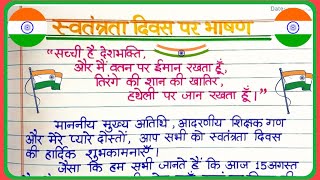 Date:
स्वतंत्रता दिवस पर भाषण
“सच्ची है देशभक्ति,
और मैं वतन पर ईमान रखता हूँ,
तिरंगे की शान की खातिर,
हथेली पर जान रखता हूँ।”
माननीय मुख्य अतिथि, आदरणीय शिक्षक गण
और मेरे प्यारे दोस्तों, आप सभी को स्वतंत्रता दिवस
की हार्दिक शुभकामनाएँ।
जैसा कि हम सभी जानते हैं कि आज 15 अगस्त